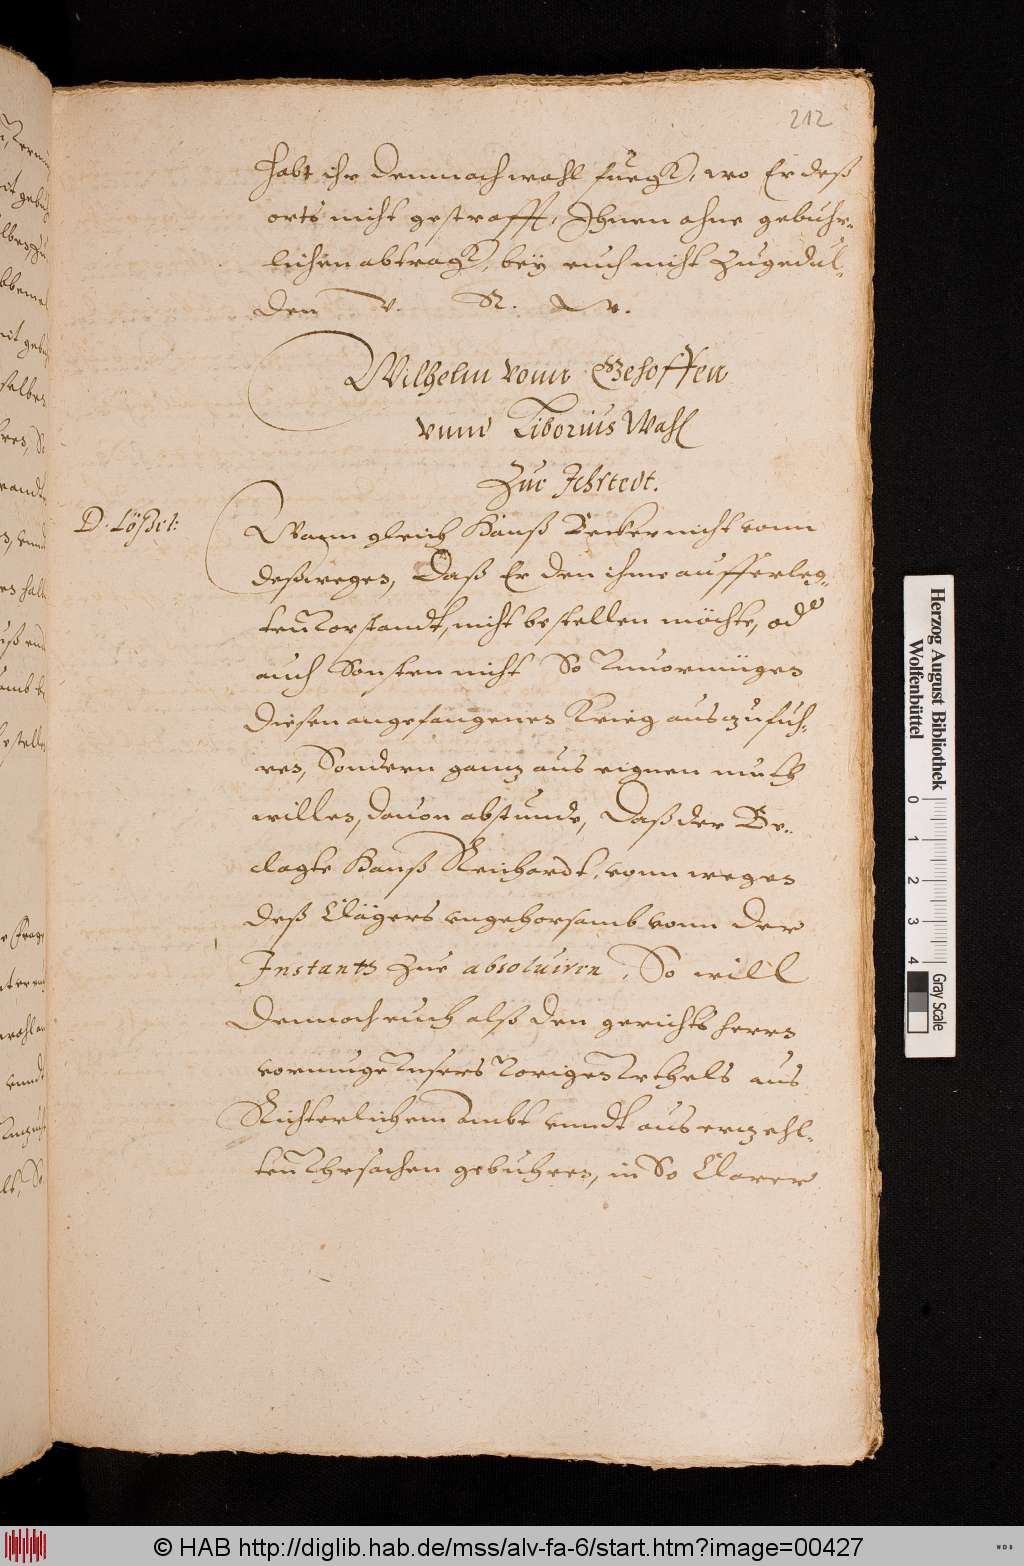 212
habt ihr dennoch wohl fueg, wo Er deß
orts nicht gestrafft, Ihnen ohne gebuhr-
lichen abtrag, bey euch nicht zugedul-
den V. R. W.
Wilhelm vonn Gehoffen
vnnd Liborius Wahl
Zue Ichstedt.
D. Lößel:
Wann gleich Hanß Becker nicht vonn
deßwegen, Daß Er den ihme aufferleg-
ten Vorstandt, nicht bestellen möchte, oder
auch Sonsten nicht So Vnuormügen
diesen angefangenen Krieg auszufüh-
ren, Sondern gantz aus eignen muth
willen, dauon abstunde, Daß der Be-
clagte Hanß Reichardt, vonn wegen
deß Clägers vngehorsamb vonn der
Instantz zue absoluiren, So will
dennoch euch alß den gerichts herrn
vormuge Vnsers Vorigen Vrthels aus
Richterlichem Ambt vnndt aus erzehl-
ten Vhrsachen gebuhren, in So Clarer
Herzog August Bibliothek
Wolfenbüttel
0 1 2 3 4
Gray Scale
© HAB http://diglib.hab.de/mss/alv-fa-6/start.htm?image=00427